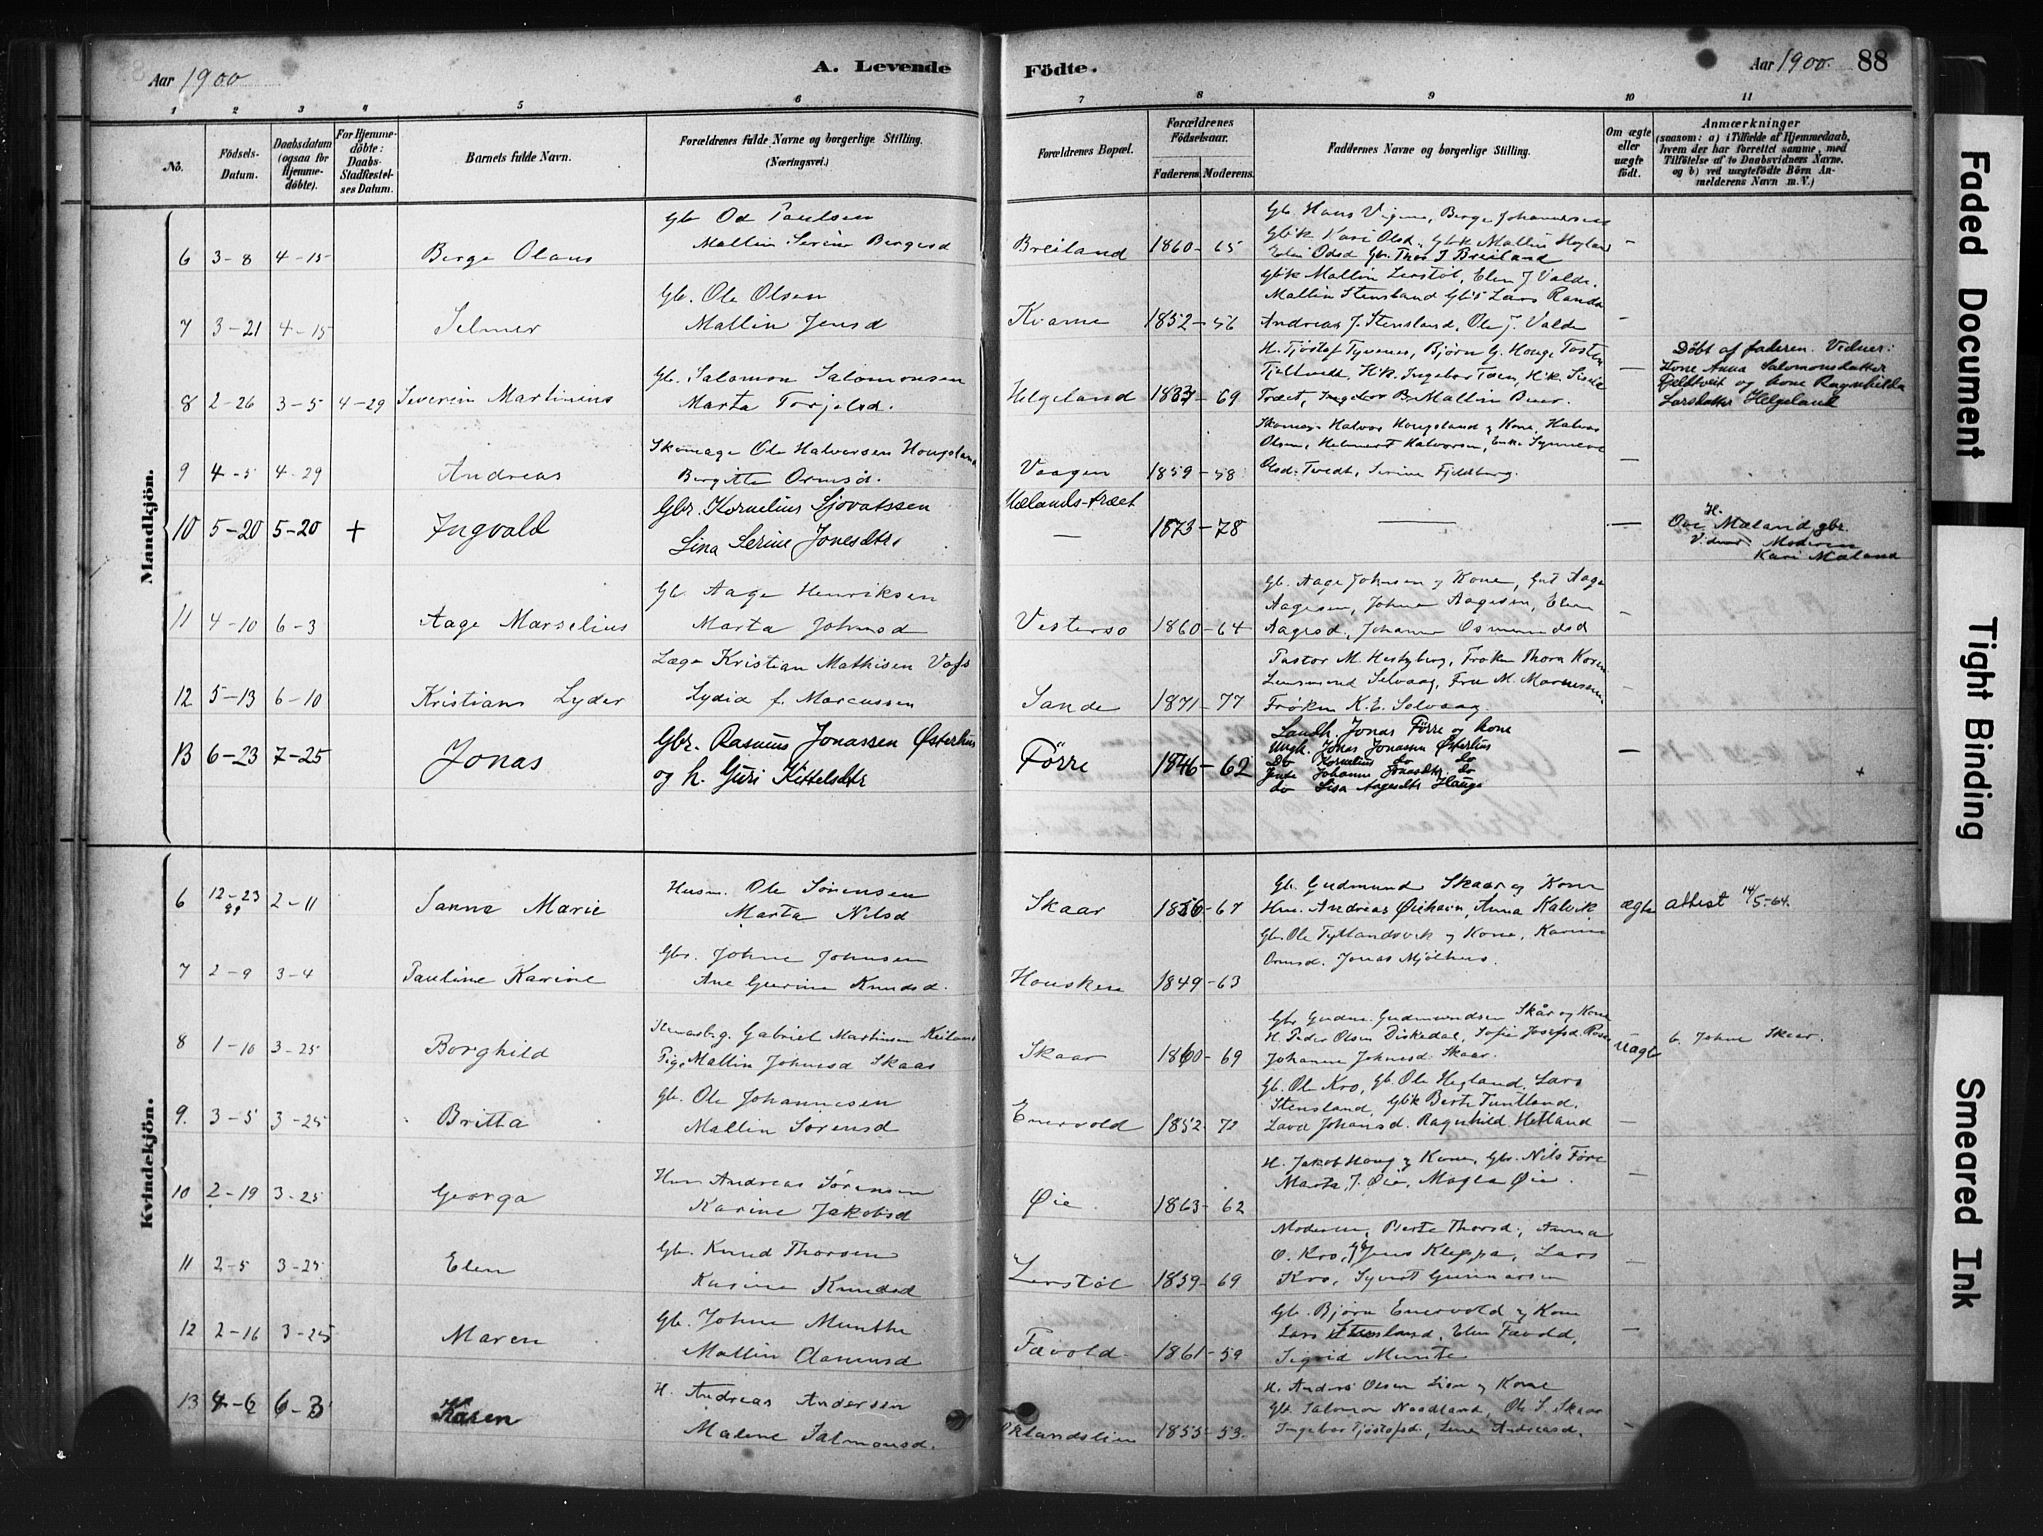 Aar 1900
A. Levende
Födte.
Aar 1900. 88
1 2 3 4 5 6 7 8 9 10 11
No.
Födsels-Datum.
Daabsdatum (ogsaa for Hjemme-döbte).
For Hjemme-döbte: Daabs-Stadfæstel-ses Datum.
Barnets fulde Navn.
Forældrenes fulde Navne og borgerlige Stilling. (Næringsvei.)
Forældrenes Bopæl.
Forældrenes Födselsaar.
Faderens. Moderens.
Faddernes Navne og borgerlige Stilling.
Om ægte eller uægte födt.
Anmærkninger
(saasom: a) i Tilfælde af Hjemmedaab, hvem der har forrettet samme, med Tilföielse af to Daabsvidners Navne. og b) ved uægtefödte Börn An-melderens Navn m. V.)
Mandkjön.
6 3-8 4-15 Berge Olaus
Gb. Od Paulsen
Mallin Serine Bergesd
Breiland 1860-65
Gb. Hans Vigene, Berge Johannesen
Gbk Kari Olsd. Gbk Mallin Hogland
Elen Odsd Gb. Thos J Breiland
7 3-21 4-15 Selmer
Gb. Ole Olsen
Mallin Jensd
Kvame 1852-56
Gbk Mallin Lerstøl, Elen J Valde.
Mallin Stensland Gbs Lars Randa
Andreas J. Stensland, Ole J. Valde
8 2-26 3-5 4-29 Severin Martinius
Gb. Salomon Salomonsen
Marta Torjelsd.
Helgeland 1837-69
H. Tjøstof Tyvenes, Bjørn G. Hauge Tosten
Træet, Mallin Buer.
Döbt af faderen. Vidner:
Kone Anna Salomonsdatter
Fjeldtveit og kone Ragnhilda
Larsdatter Helgeland
9 4-5 4-29 Andreas
Skomage Ole Halvorsen Hougsland
Bergitte Ormsd.
Vaagen 1859-58
Skomag. Halvor Hougsland og Kone, Halvor
Olsen, Helmert Halvorsen, Enke Synneve
Olsd. Tvedt, Serine Fjeldberg.
10 5-20 5-20 + Ingvald
Gbr. Kornelius Sjovatssen
Lina Serine Jonesdtr.
Mælands-træet 1873-78
H.
Ove Mæland gbr.
Vidner Moderen
Kari Mæland
11 4-10 6-3 Aage Marselius
Gb. Aage Henriksen
Marta Johnsd
Vestersø 1860-64
Gb. Aage Johnsen og Kone, Gut Aage
Aagesen, Johne Aagesen, Elen
Aagesd, Johanne Osmundsd
12 5-13 6-10 Kristians Lyder
Læge Kristian Mathisen Vafs
Lydia f. Marcussen
Sande 1871-77
Pastor M. Hertzberg, Frøken Thora Koren
Lensmand Selvaag, Fru M. Marcussen
Frøken K. E. Selvaag.
13 6-23 7-25 Jonas
Gbr. Rasmus Jonassen Østerhus
og h. Guri Kittelsdtr
Førre 1846-62
Landh. Jonas Førre og kone
Ungk. Jonas Jonassen Østerhus
Do Kornelius do do
Jente Johanne Jonasdtr do
do Lisa Aagesdtr Hauge
Kvindekjön.
6 12-23 99 2-11 Sanna Marie
Husm. Ole Sørensen
Marta Nilsd
Skaar 1856-67
Gb. Gudmund Skaar og Kone
Hm. Andreas Øiehavn, Anna Kalvik
ægte attest 14/5-64.
7 2-9 3-4 Pauline Karine
Gbr. Johne Johnsen
Ane Gurine Knudsd.
Housken 1849-63
Gbr. Ole Tytlandsvik og Kone, Karine
Ormsd. Jonas Mjølhus.
8 1-10 3-25 Borghild
Gabriel Martinsen Keiland
Pige Mallin Johnsd Skaar
Skaar 1860-69
Gbr Gudm. Gudmundsen Skår og Kone
H. Peder Olsen Diskedal, Sofie Josefsd. Rosse
Johanne Johnesd. Skaar.
uægte G. Johne Skaar.
9. 3-5 3-25 Britta
Gb. Ole Johannesen
Mallin Sørensd
Enervold 1852-72
Gb. Ole Kro, Gb. Ole Hegland, Lars
Stensland, Gbk Berte Tuntland.
Lava Johansd. Ragnhild Hetland
10 2-19 3-25 Georga
Hm Andreas Sørensen
Karine Jakobsd
Øie 1863-62
H. Jakob Haug og Kone, Gbr. Nils Føre
Marta J. Øie, Magla Øie.
11 2-5 3-25 Elen
Gb. Knud Thorsen
Karine Knudsd
Lerstøl 1859-69
Moderen, Berte Thorsd., Anna
O. Kro, Gb Jens Kleppa, Lars
Kro, Syvert Gunnarsen
12 2-16 3-25 Maren
Gb. Johne Munthe
Mallin Aamundsd
Fævold 1861-59
Gb. Bjørn Enervold og Kone
Lars Stensland, Elen Fævold,
Sigrid Munte
13 4-6 6-3 Karen
H. Andreas Andersen
Malene Salmonsd.
Øklandslien 1855-53.
H. Anders Olsen Lien og Kone
Gb. Salomon Naadland, Ole S. Skaar
Ingebor Tjøstofsd., Lene Andreasd.
Faded Document
Tight Binding
Smeared Ink